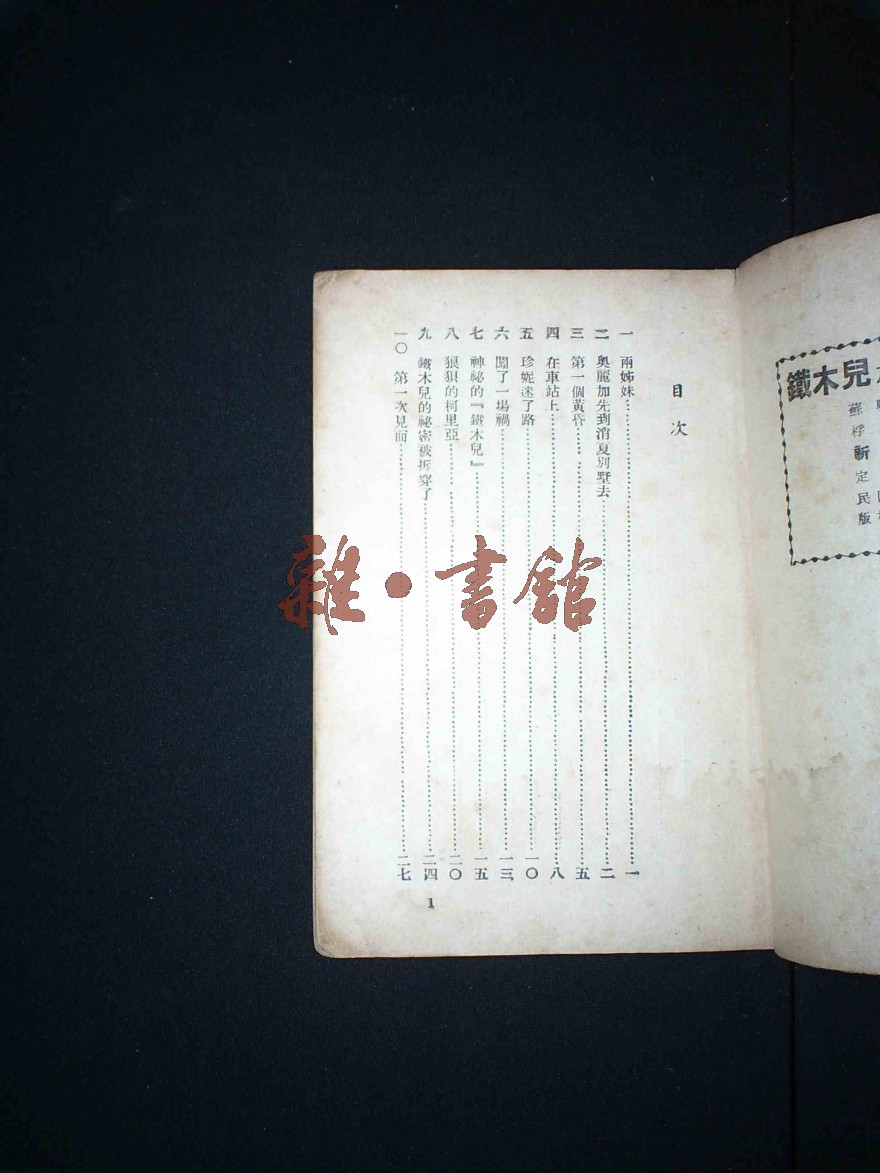 目次
一 兩姊妹 一
二 奧麗加先到消夏別墅去 二
三 第一個黃昏 五
四 在車站上 八
五 珍妮迷了路 一〇
六 闖了一場禍 一三
七 神祕的『鐵木兒』 一五
八 狠狽的柯里亞 二〇
九 鐵木兒的祕密被拆穿了 二四
一〇 第一次見面 二七
1
鐵木兒
蘇桴
新定
民版
雜·書館